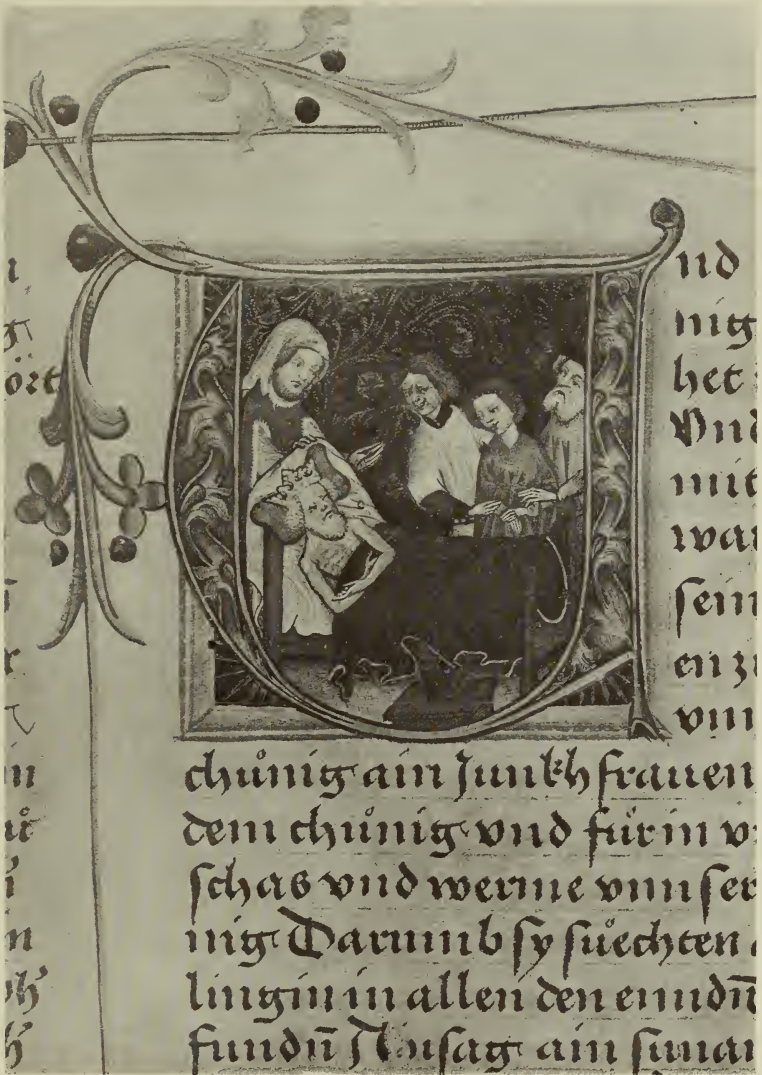 ört
nd
nig
het
Vnd
mit
war
sein
en zu
chůnig ain Junkhfrauen
dem chůnig vnd für in v
schas vnd werme vnnser
nig Darumb sy sůechten
lingin in allen den enndn̄
fundn̄ Abisag ain sunam